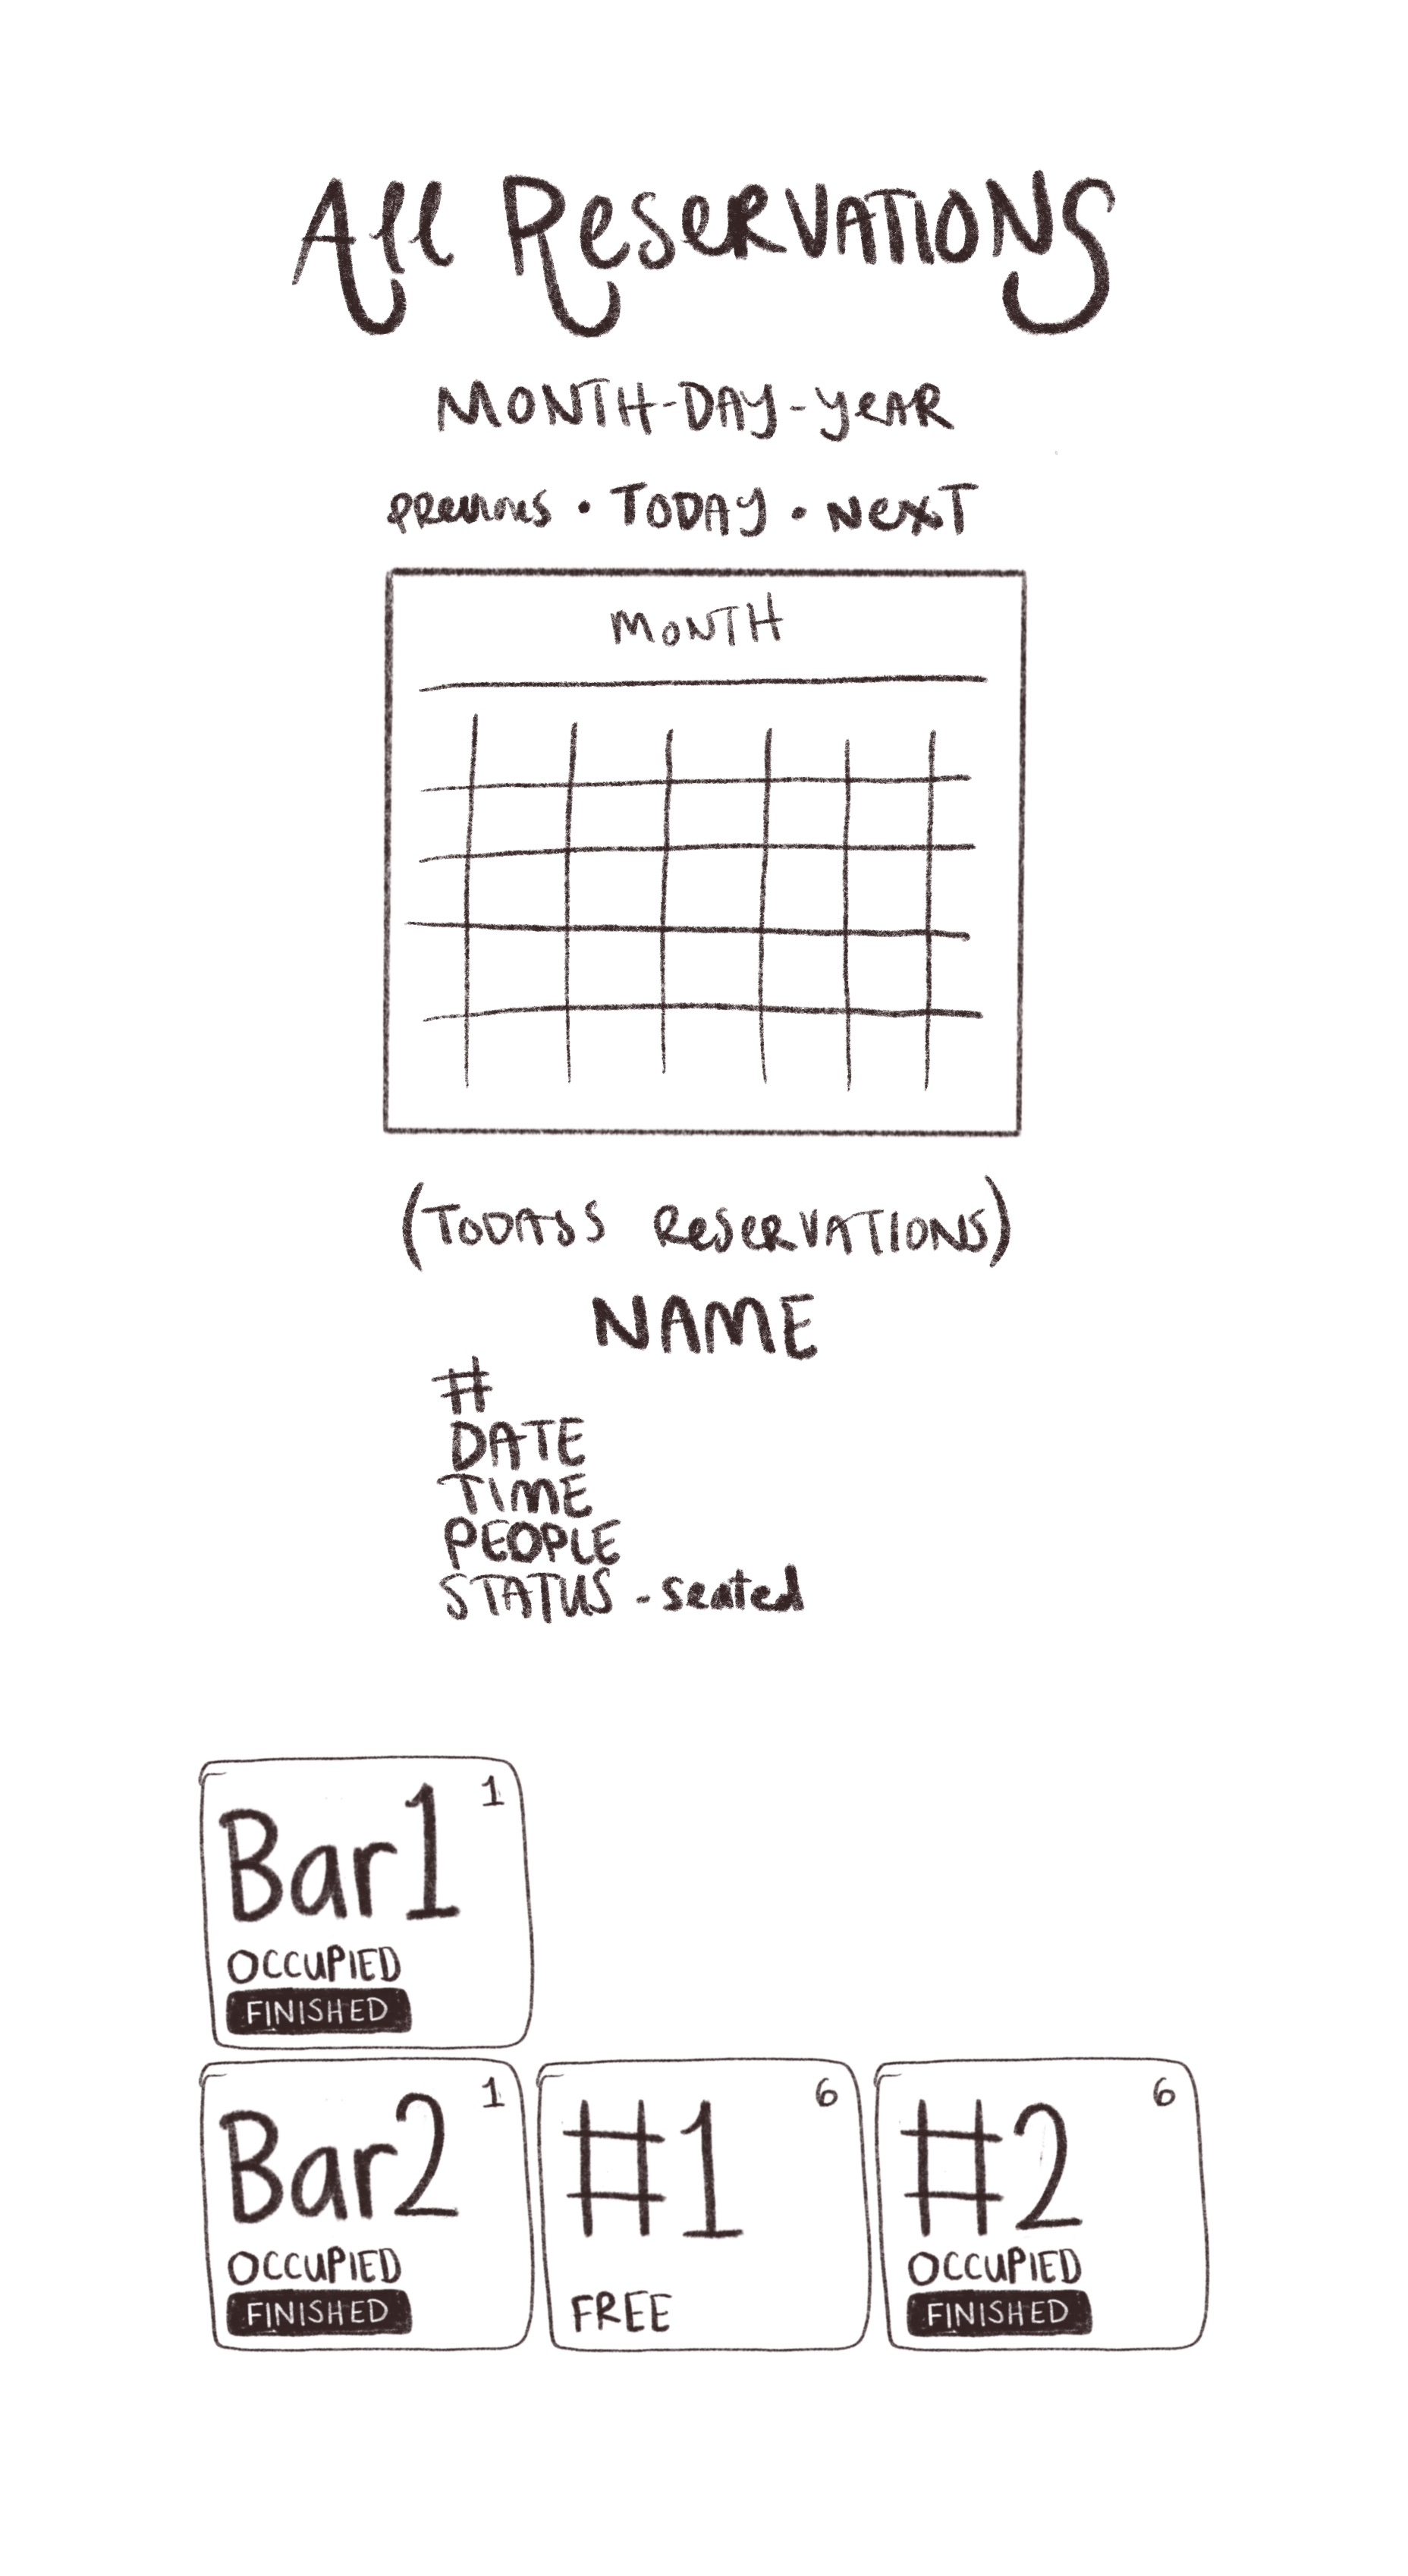 All Reservations
MONTH-DAY-YEAR
previous • TODAY • NEXT
MONTH
(TODAYS RESERVATIONS)
NAME
#
DATE
TIME
PEOPLE
STATUS - seated
1
Bar1
OCCUPIED
FINISHED
1
Bar2
OCCUPIED
FINISHED
6
#1
FREE
6
#2
OCCUPIED
FINISHED